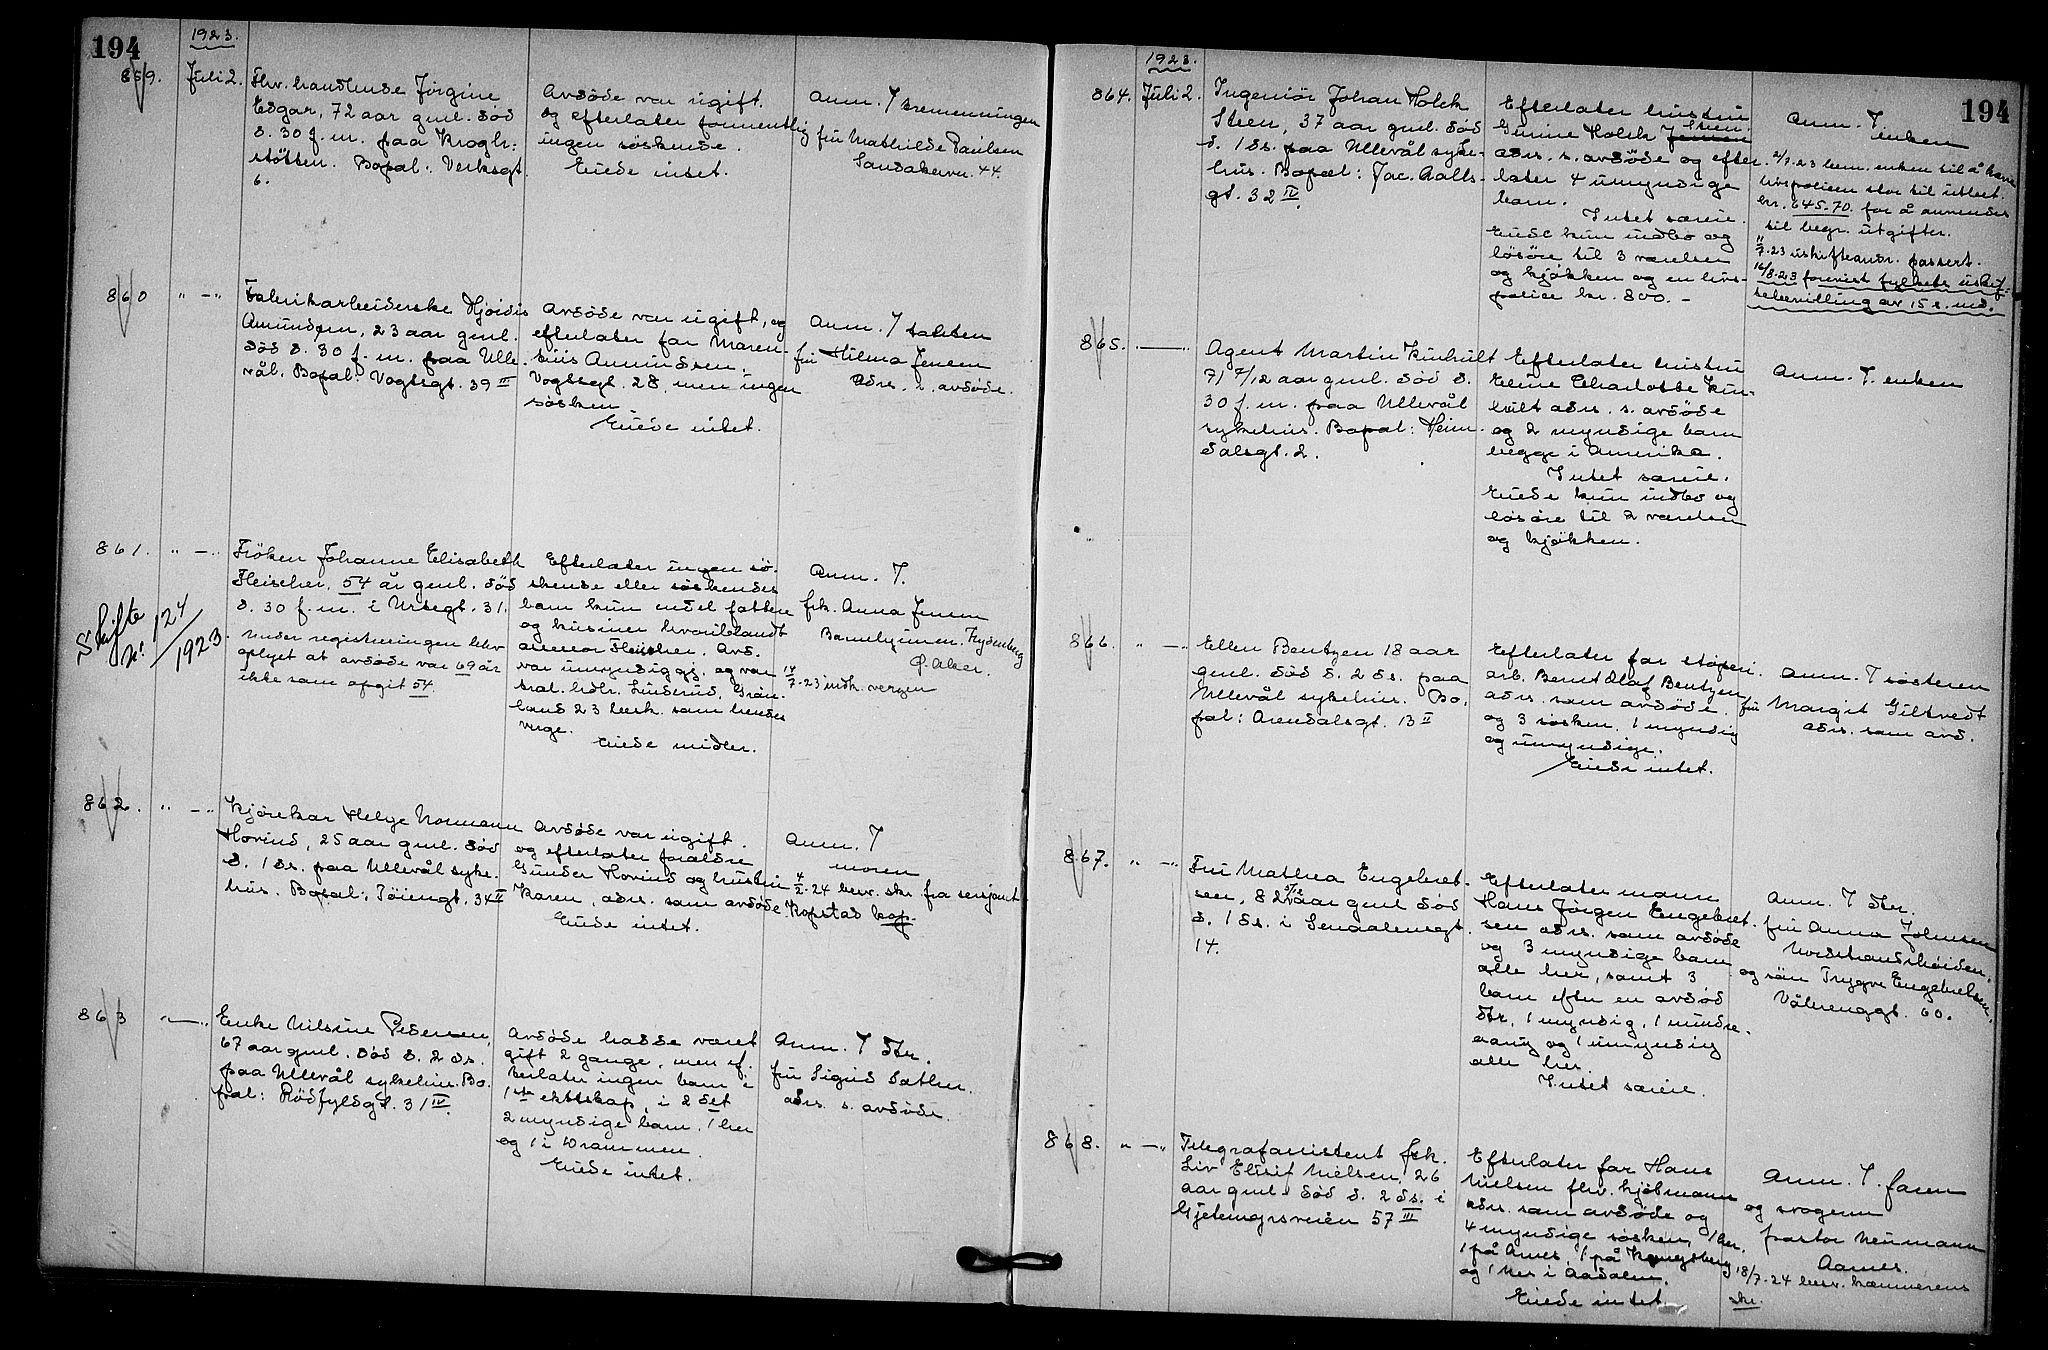 194
1923.
859.
Juli 2.
Fhv. handlende Jørgine
Edgar, 72 aar gml. død
d. 30 f. m. paa Krogh:
støtten. Bopæl: Verksgt.
6.
Avdøde var ugift.
og efterlater formentlig
ingen søskende.
Eiede intet.
Anm. 7
fru Mathilde Paulsen
Sandakerv. 44.
860
" — "
Fabrikarbeiderske Hjørdis
Amundsen, 23 aar gml.
død d. 30 f. m. paa Ulle
vål. Bopæl: Vogtsgt. 39 III
Avdøde var ugift, og
efterlater far Maren
Amundsen,
Vogtsgt. 28, men ingen
søsken.
Eiede intet.
Anm. 7 tanten
fru Hilma Jensen
adrs. s. avdøde.
861.
" — "
Skifte
nr. 124
/1923.
Frøken Johanne Elisabeth
Fleischer, 54 år gml. død
d. 30 f. m. i Urtegt. 31.
Under registreringen blev
oplyst at avdøde var 69 år
ikke som opgit 54.
Efterlater ingen sø.
skende eller søskendes
barn kun endel fættere
og kusiner hvoriblandt
assessor Fleischer. Avd.
var umyndiggj. og var
tral. hdlr. Linderud, Grøn
land 23 besk. som hendes
verge.
Eiede midler.
Anm. 7.
frk. Anna Jensen
Barnehjemmet Frydenberg
Ø. Aker.
14/7-23 indk. vergen
862.
" — "
Kjørekar Helge Normann
Hovind, 25 aar gml. død
d. 1 ds. paa Ullevål syke.
hus. Bopæl: Tøiengt. 34 II
Avdøde var ugift.
og efterlater forældre
Gunder Hovind og hustru
Karen, adrs. som avdøde.
Eiede intet.
Anm. 7
moren
4/2-24 besv. skr. fra sersjant
Kopstad kop.
863
" — "
Enke Nilsine Pedersen,
67 aar gml. død d. 2 ds.
paa Ullevål sykehus. Bo.
pæl: Rødfyldgt. 31 IV.
Avdøde hadde været
gift 2 gange, men ef.
terlater ingen barn i
1ste ekteskap, i 2 det
2 myndige barn. 1 her
og 1 i Drammen.
Eiede intet.
Anm. 7 dtr.
fru Sigrid Sather.
adrs. s. avdøde.
194
1923.
864.
Juli 2.
Ingeniør Johan Holck
Steen, 37 aar gml. død
d. 1 ds. paa Ullevål syke-
hus. Bopæl: Jac. Aalls-
gt. 32 IV.
Efterlater hustru
Steen.
Gunine Holck Jensen
adrs. s. avdøde og efter
later 4 umyndige
barn.
Intet særeie.
Eiede kun indbo og
løsøre til 3 værelser
og kjøkken og en livs-
police kr. 800.-
Anm. 7
enken
2/7.23 bem. enken til å hæve
livspolicen stor til utbet.
kr. 645.70. for å anvendes
til begr. utgifter.
11/7.23 uskifteandr. passert.
16/8.23 forevist fylkets uskif-
tebevilling av 15 s. md.
865.
" — "
Agent Martin Kinhult
71 9/12 aar gml. død d.
30 f. m. paa Ullevål
sykehus. Bopæl: Heim
dalsgt. 2.
Efterlater hustru
Eline Charlotte Kin-
hult adrs. s. avdøde
og 2 myndige barn
begge i Amerika.
Intet særeie.
Eiede kun indbo og
løsøre til 2 værelser
og kjøkken.
Anm. 7. enken
866.
" — "
Ellen Bentzen 18 aar
gml. død d. 2 ds. paa
Ullevål sykehus. Bo.
pæl: Arendalsgt. 13 II
Efterlater far støperi.
arb. Bernt Olaf Bentzen
adrs. som avdøde
og 3 søsken. 1 myndig
og umyndige.
Eiede intet.
Anm. 7 søsteren
fru Margit Giltvedt
adrs. som avd.
867.
" — "
Fru Mathea Engebret.
sen, 82 5/12 aar gml død
d. 1 ds. i Sendalensgt.
14.
Efterlater mann
Hans Jørgen Engebret.
sen adrs. som avdøde
og 3 myndige barn
alle her, samt 3
barn efter en avdød
dtr. 1 myndig, 1 mindre.
aarig og 1 umyndig
alle her.
Intet særeie.
Anm. 7 dtr.
fru Anna Johnsen
Nordstrandshøiden.
og søn Trygve Engebretsen,
Vålerenggt. 60.
868.
" — "
Telegrafassistent frk.
Liv Elisit Nielsen, 26
aar gml. død d. 2 ds. i
Gjetemyrsveien 57 III
Efterlater far Hans
Nielsen fhv. kjøbmann
adrs. som avdøde og
4 myndige søsken, 1 her.
1 på Arnes, 1 på Kongsberg
og 1 Nes i Aadalen.
Eiede intet.
Anm. 7. faren
og svogeren
pastor Neumann
Aarnes.
18/7-24 besv. kæmnerens
skr.